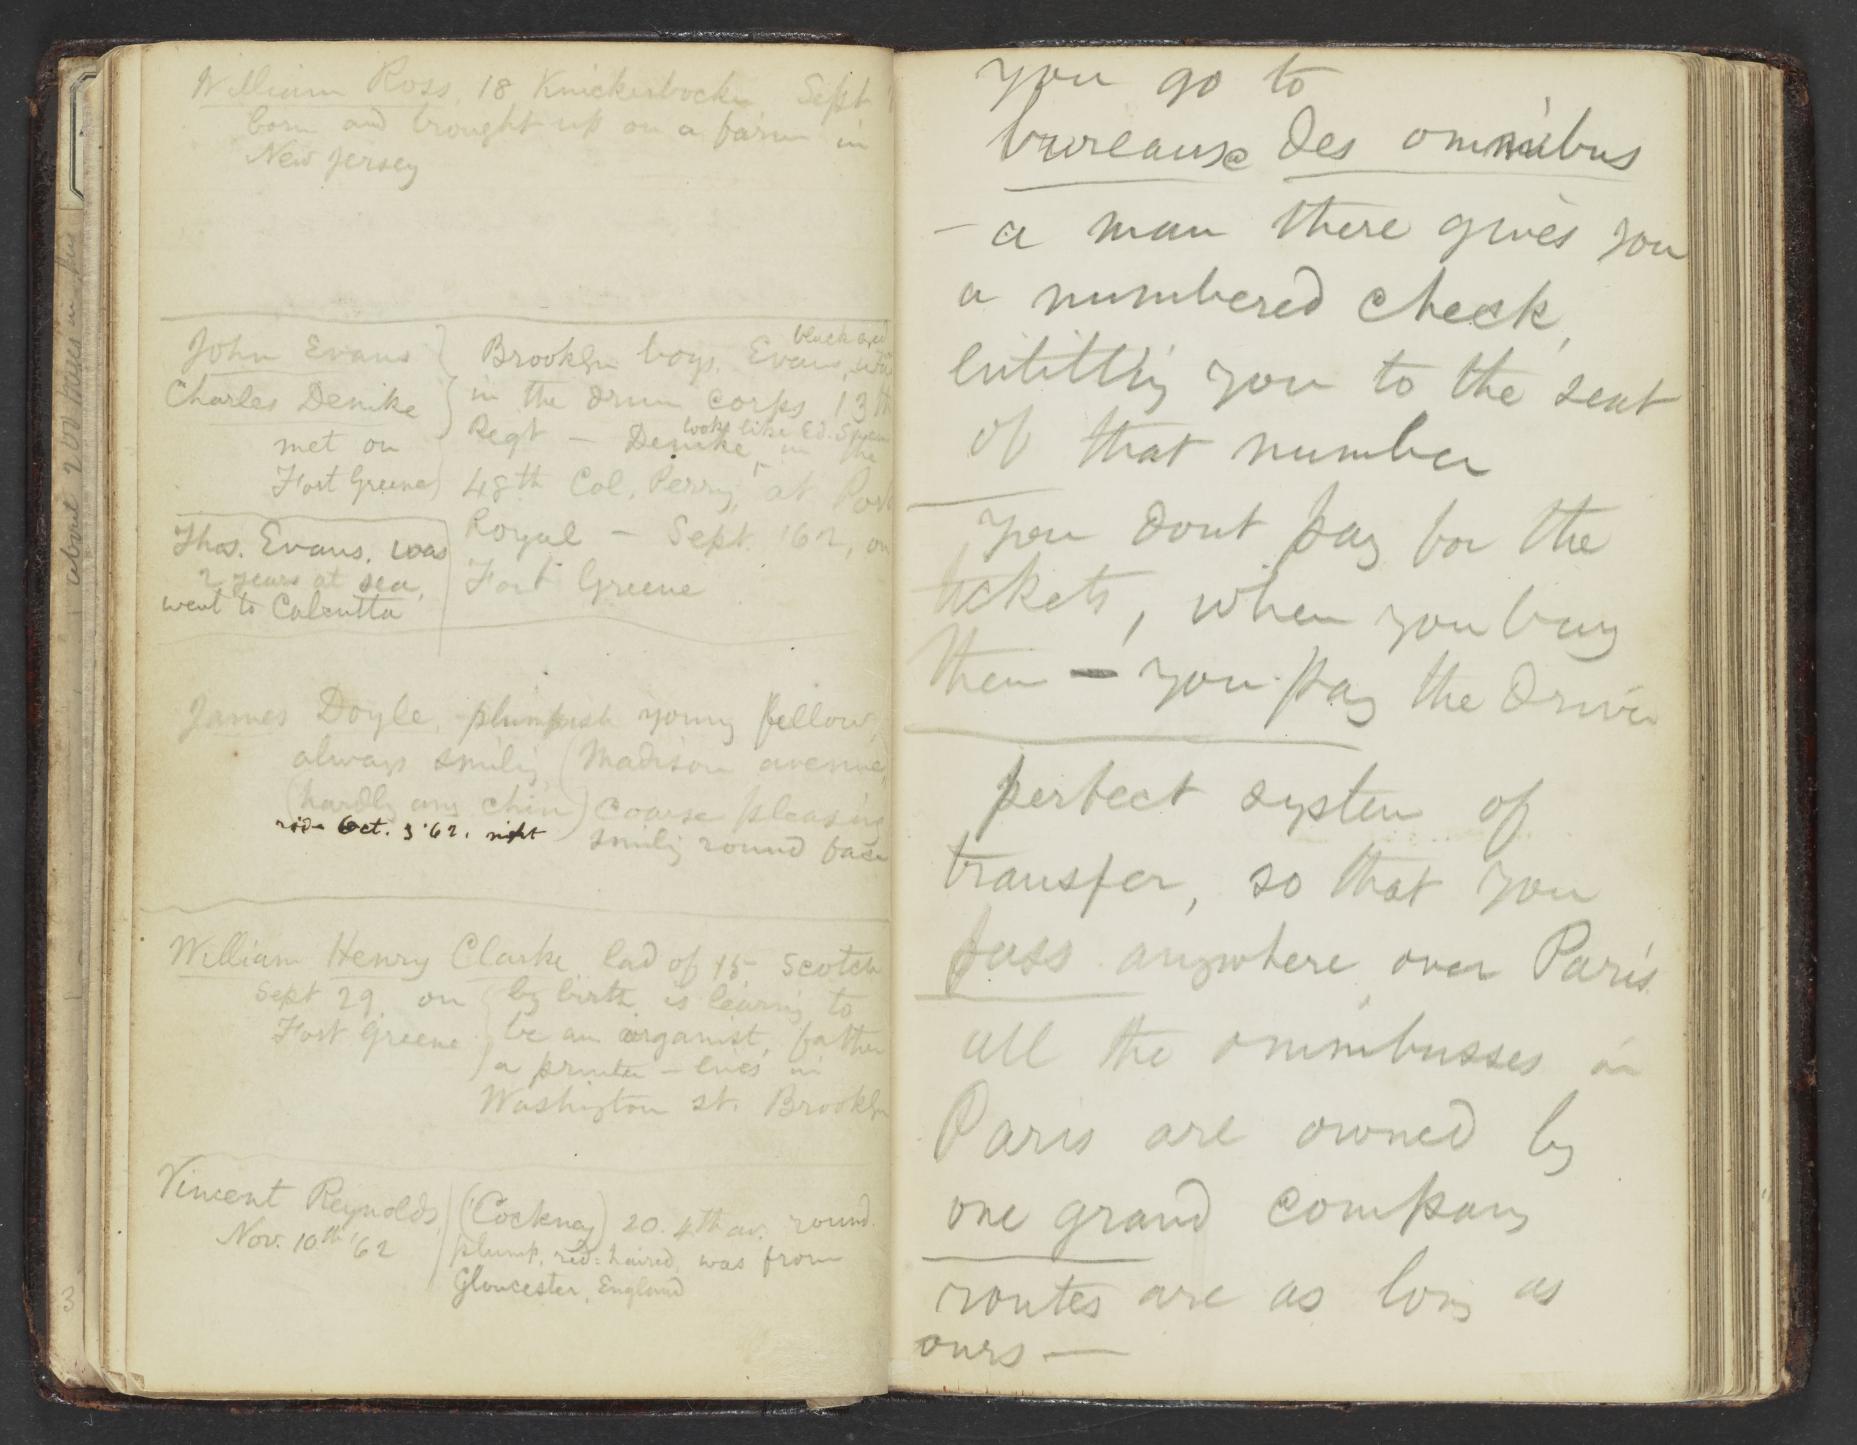 William Ross, 18 Knickerbocker Sept
born and brought up on a farm in
New Jersey
John Evans
Charles Denike
met on
Fort Greene
Brooklyn boys. Evans, black eyed
in the drum corps 13th
Regt — Denike, looks like Ed. in the
48th Col. Perry, at Port
Royal — Sept. '62, on
Fort Greene
Thos. Evans. was
2 years at sea,
went to Calcutta
James Doyle. plumpish young fellow,
always smiling (Madison avenue,
(hardly any chin) coarse pleasing
smiling round face
rode Oct. 3 '62. night
William Henry Clarke lad of 15 Scotch
Sept 29. on
Fort Greene
by birth. is learning to
be an organist, father
a printer — lives in
Washington st. Brooklyn
Vincent Reynolds,
Nov. 10th '62
(Cockney) 20. 4th av. round.
plump, red-haired, was from
Gloucester, England
about 200 miles in
3
you go to
bureause des omnibus
— a man there gives you
a numbered check,
entittling you to the seat
of that number
you dont pay for the
tickets, when you buy
them — you pay the driver
perfect system of
transfer, so that you
pass anywhere over Paris
all the omnibusses in
Paris are owned by
one grand company
routes are as long as
ours —